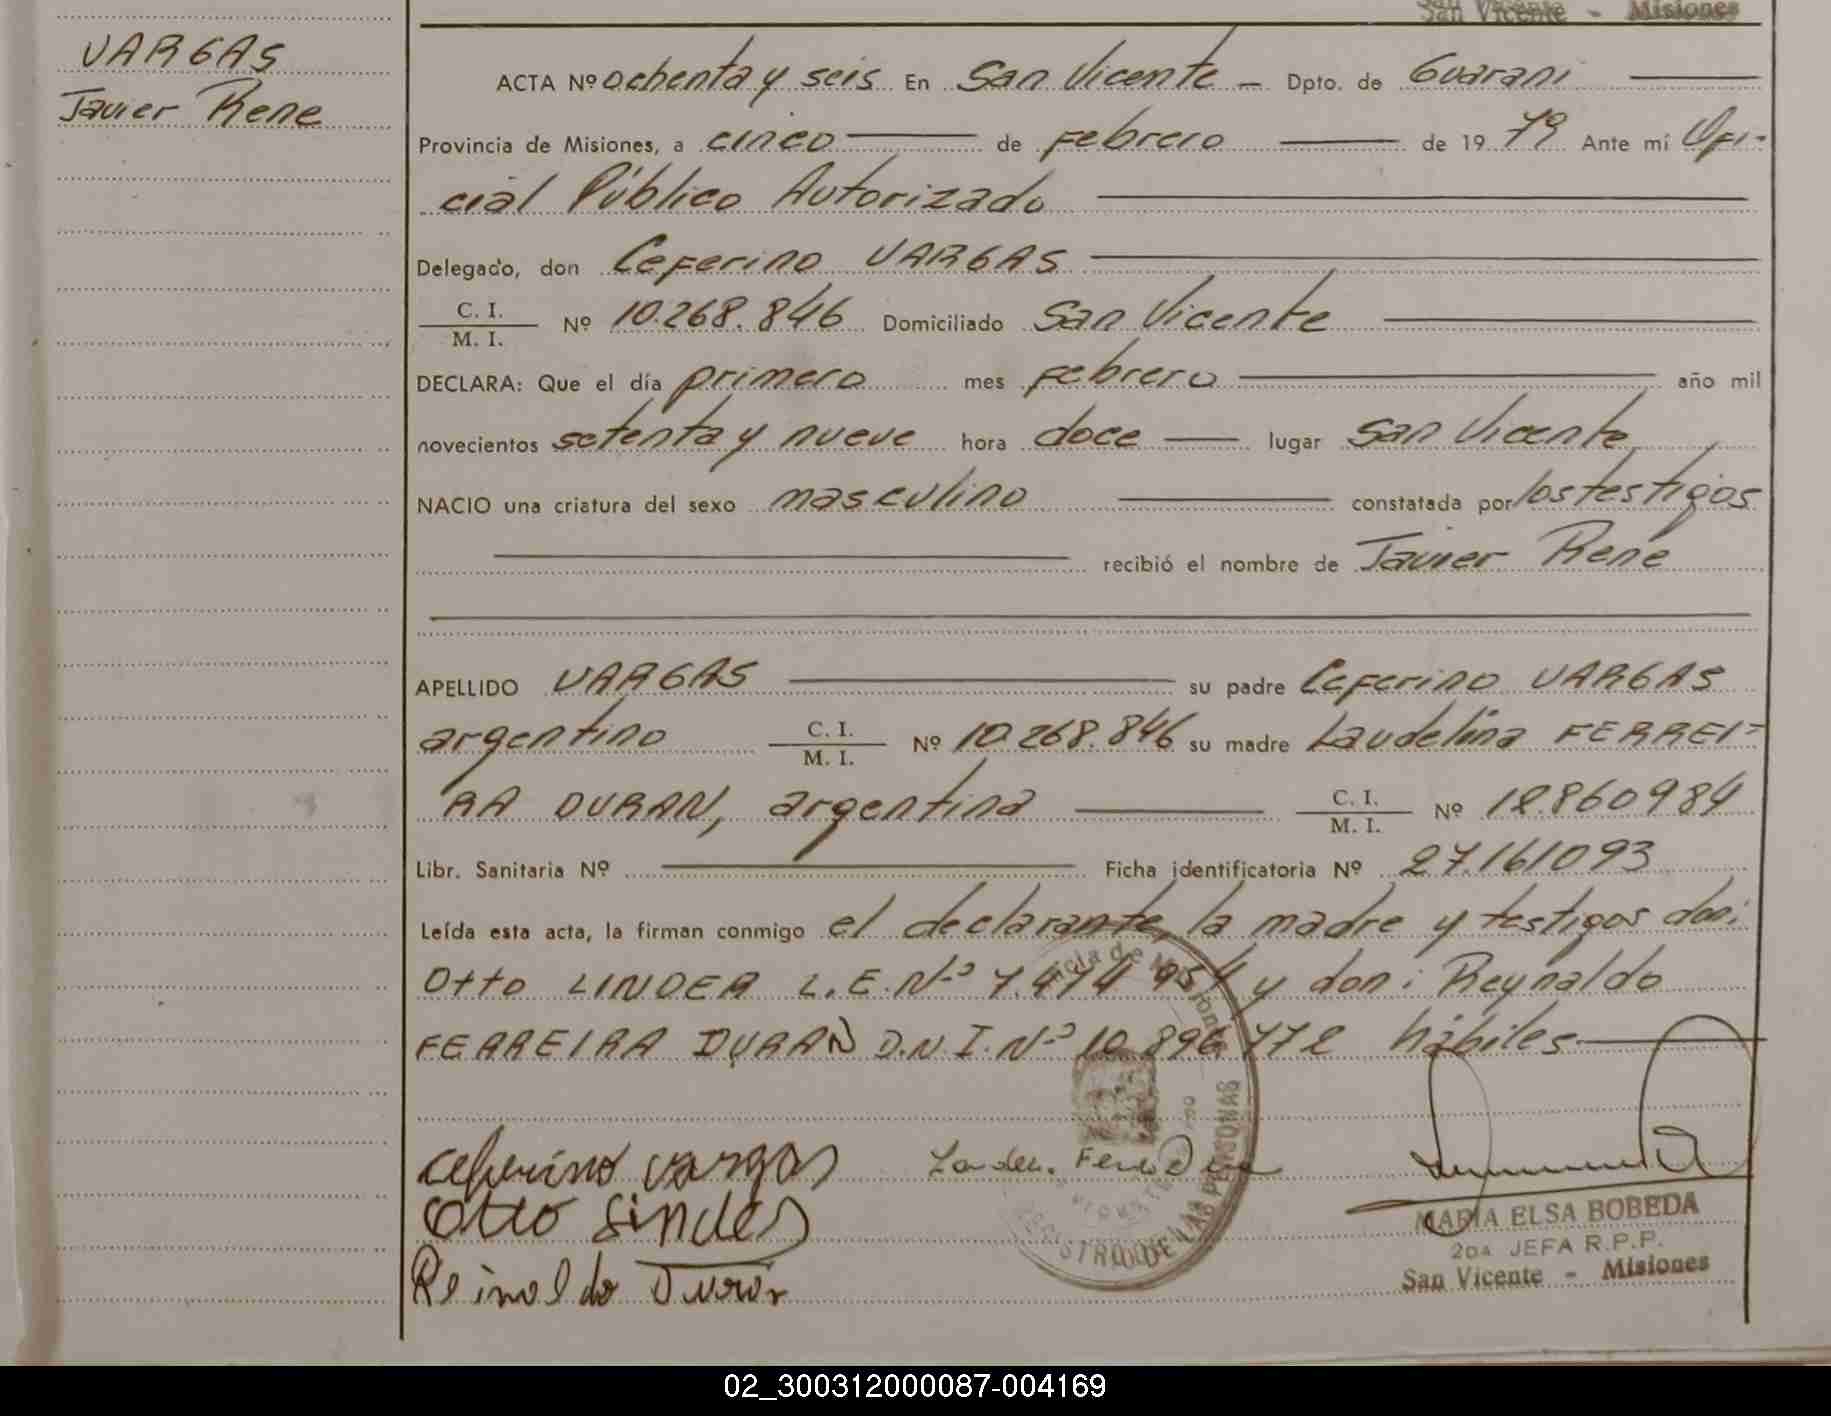 San Vicente - Misiones
VARGAS
Javier Rene
ACTA Nº ochenta y seis En San Vicente - Dpto. de Guarani
Provincia de Misiones, a cinco de febrero de 19 79 Ante mí Ofi-
cial Público Autorizado
Delegado, don Ceferino VARGAS
C. I.
M. I. Nº 10.268.846 Domiciliado San Vicente
DECLARA: Que el día primero mes febrero año mil
novecientos setenta y nueve hora doce lugar San Vicente
NACIO una criatura del sexo masculino constatada por los testigos
recibió el nombre de Javier Rene
APELLIDO VARGAS su padre Ceferino VARGAS
argentino C. I.
M. I. Nº 10.268.846 su madre Laudelina FERREI-
RA DURAN, argentina C. I.
M. I. Nº 12860984
Libr. Sanitaria Nº Ficha identificatoria Nº 27.161093
Leída esta acta, la firman conmigo el declarante, la madre y testigos don:
Otto LINDER L.E. Nº 7.474 954 y don: Reynaldo
FERREIRA DURAN D.N.I. Nº 10.896 772 hábiles
Ceferino vargas
Otto Linder
Reinaldo Duran
REGISTRO DE LAS PERSONAS
MARIA ELSA BOBEDA
2DA JEFA R.P.P.
San Vicente - Misiones
02_300312000087-004169